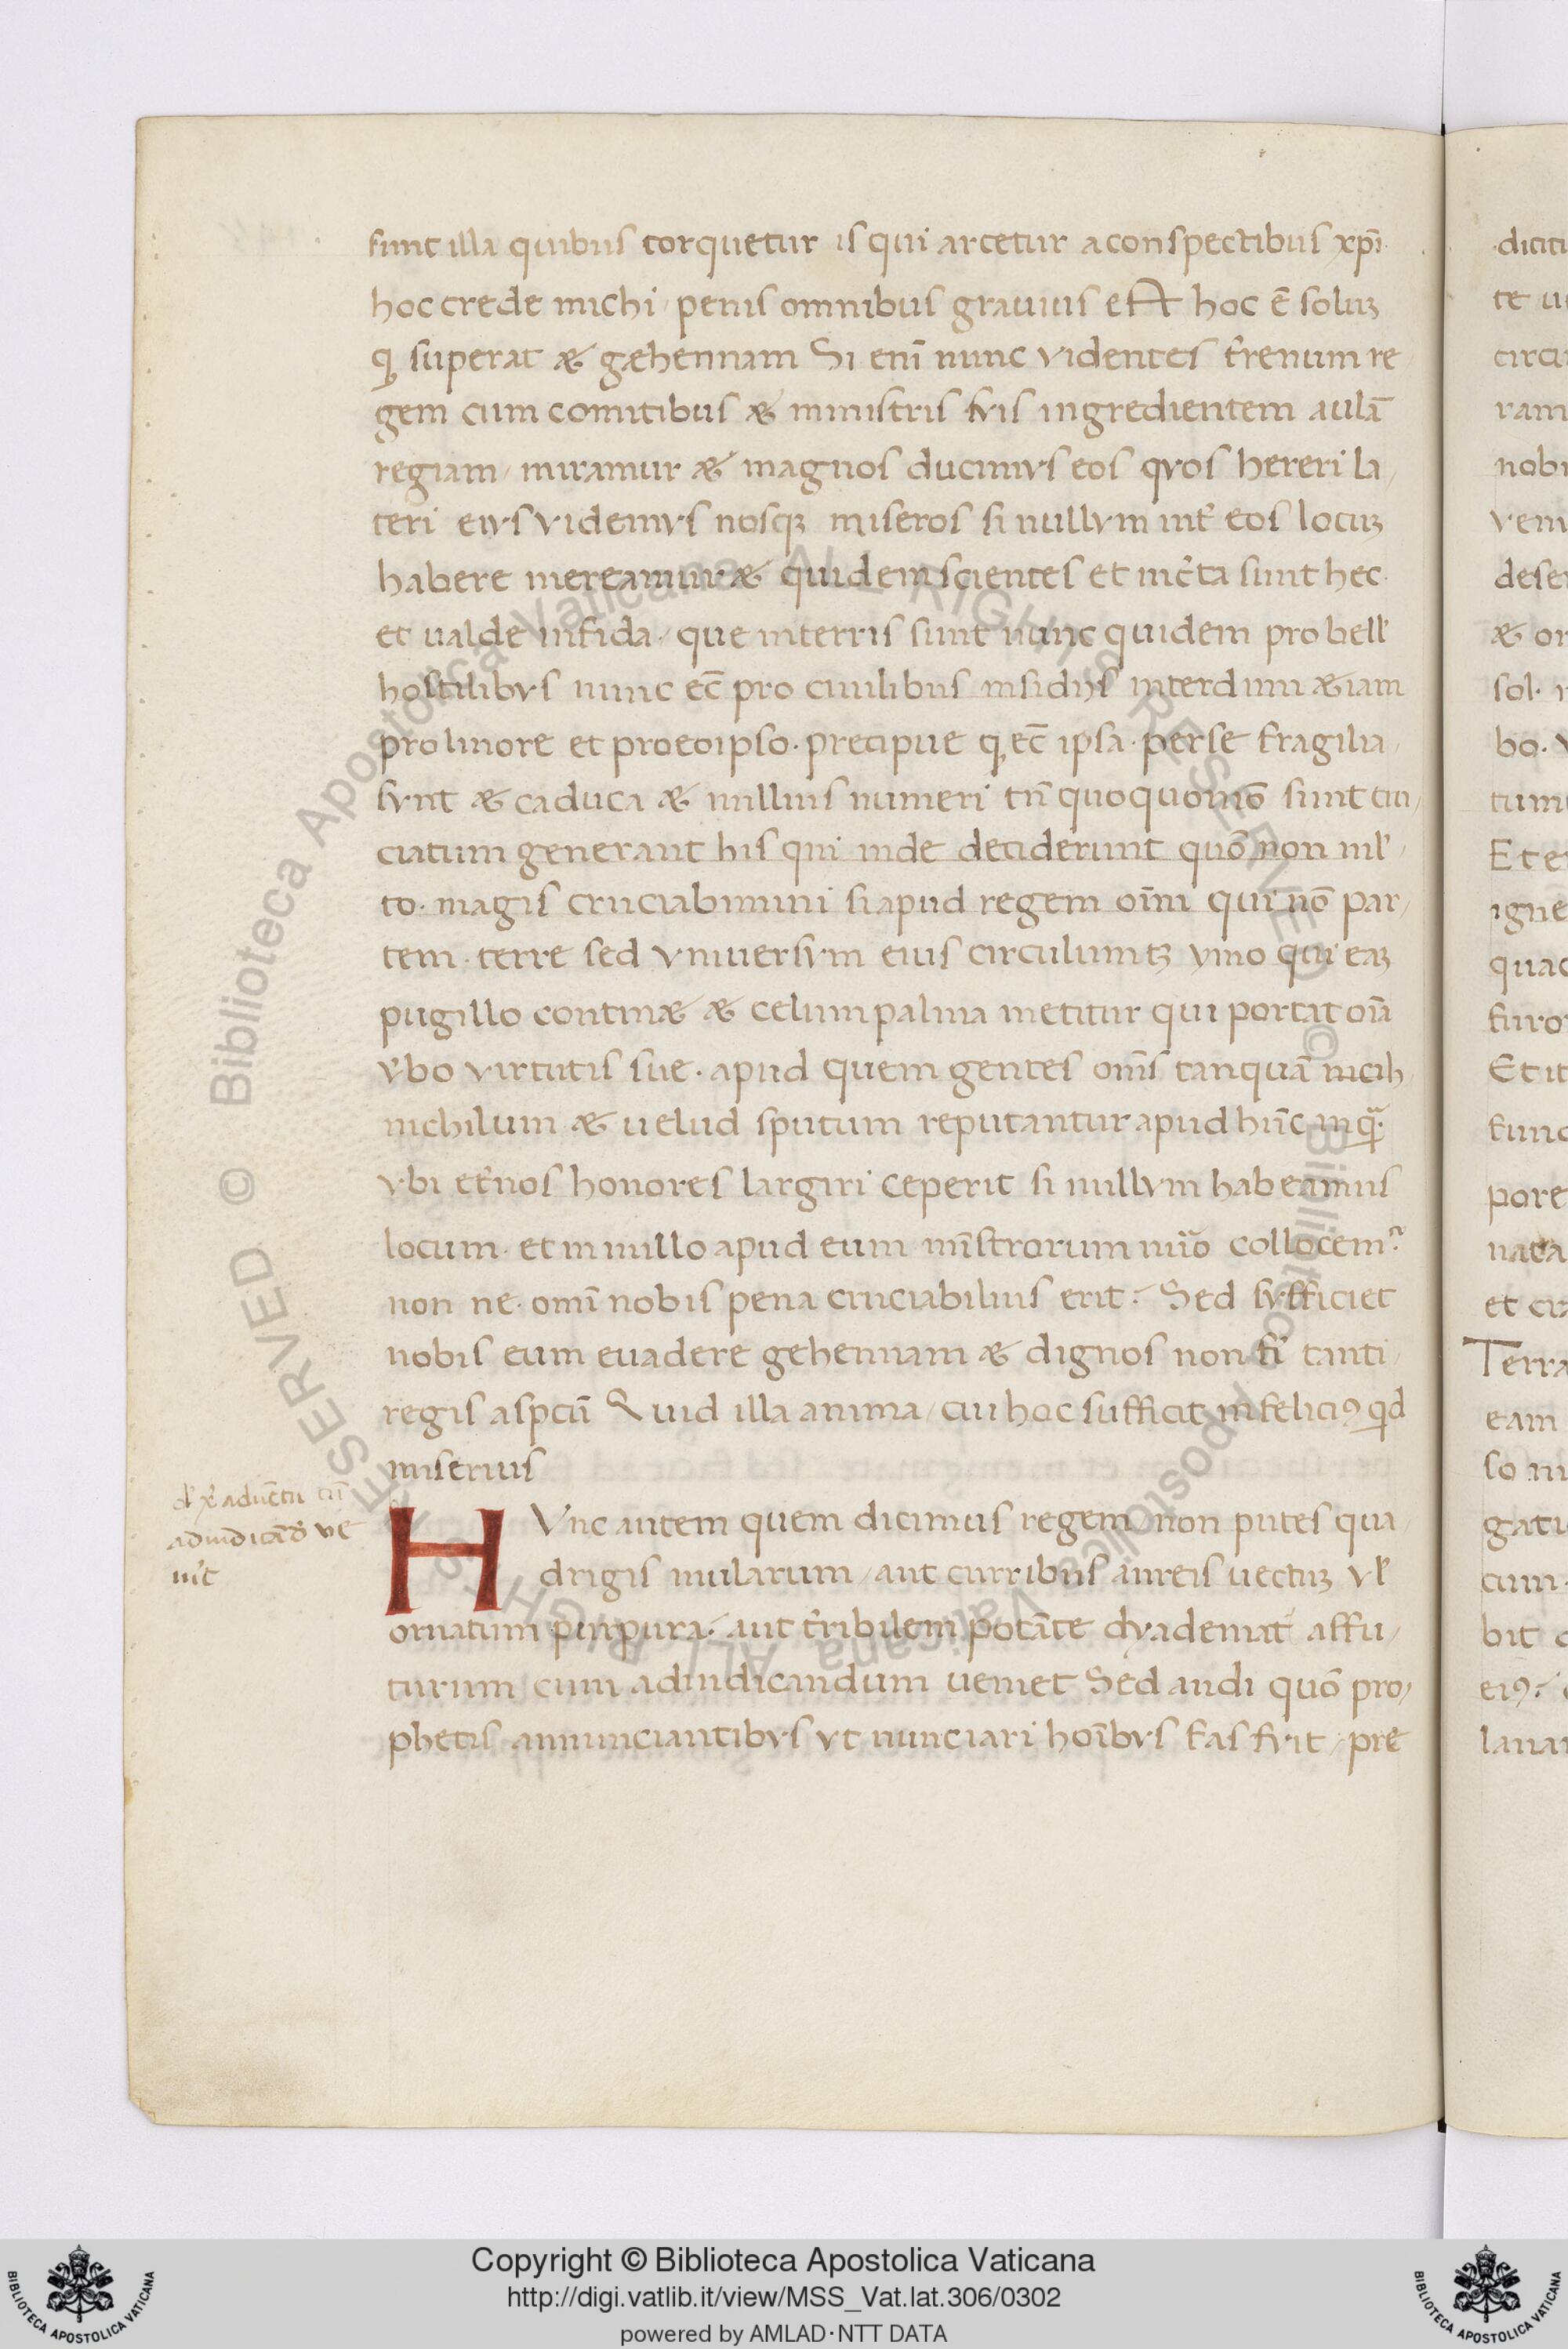 sunt illa quibus torquetur is qui arcetur aconspectibus xp̄i·
hoc crede michi / penis omnibus grauius est hoc ē soluꝫ
qꝫ superat & gæhennam Si enī nunc videntes t̄renum re
gem cum comitibus & ministris svis ingredientem aulā
regiam / miramur & magnos ducimvs eos qvos hereri la /
teri eivs videmvs nosqꝫ miseros si nullvm int̄ eos locuꝫ
habere mereamur & quidem scientes et inc̄ta sunt hec·
et ualde infida· que interris sunt nunc quidem pro bell̄
hostilibvs nunc ec̄ pro ciuilibus insidijs interdum &iam
pro liuore et pro eo ipso· precipue qꝫ ec̄ ipsa· perse fragilia /
svnt & caduca & nullius numeri tn̄ quoquomō sunt cru /
ciatum generant his qui inde deciderunt quō non ml̄ /
to· magis cruciabimini si apud regem oīm qui nō par /
tem· terre sed vniuersvm eius circulum tꝫ ymo qui eaꝫ
pugillo contin& & celum palma metitur qui portat oīa
v̄bo virtutis sue· apud quem gentes om̄s tanquā nicih
nichilum & uelud sputum reputantur apud hūc inqᷓ·
vbi et̄nos honores largiri ceperit si nullvm habeamus
locum· et in nullo apud eum mīstrorum nūo collocemꝰ
non ne· omī nobis pena cruciabilius erit? Sed svfficiet
nobis eum euadere gehennam & dignos non fi tanti /
regis aspcū Quid illa anima / cui hoc sufficit infeliciꝰ qd
miserius
HVnc autem quem dicimus regem non putes qua /
drigis mularum / aut curribus aureis uectuꝫ vl̄
ornatum purpura· aut t̄ribilem potāte dyademat̄ affu /
turum cum adiudicandum ueniet Sed audi quō pro /
phetis annunciantibvs vt nunciari hoībvs fas fvit / pre
d̄ xp̄i aduētu cū
adiudicādū ve
nīt